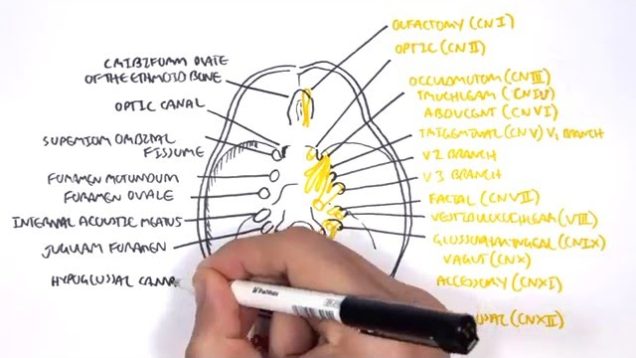 CRIBIFORM PLATE
OF THE ETHMOID BONE
OPTIC CANAL
SUPERIOR ORBITAL
FISSURE
FORAMEN ROTUNDUM
FORAMEN OVALE
INTERNAL ACOUSTIC MEATUS
JUGULAR FORAMEN
HYPOGLOSSAL CANA
OLFACTORY (CN I)
OPTIC (CN II)
OCCULOMOTOR (CN III)
TROCHLEAR (CN IV)
ABDUCENT (CN VI)
TRIGEMINAL (CN V) V1 BRANCH
V2 BRANCH
V3 BRANCH
FACIAL (CN VII)
VESTIBULOCOCHLEAR (VIII)
GLOSSOPHARYNGEAL (CN IX)
VAGUS (CN X)
ACCESSORY (CN XI)
SSAL (CN XII)